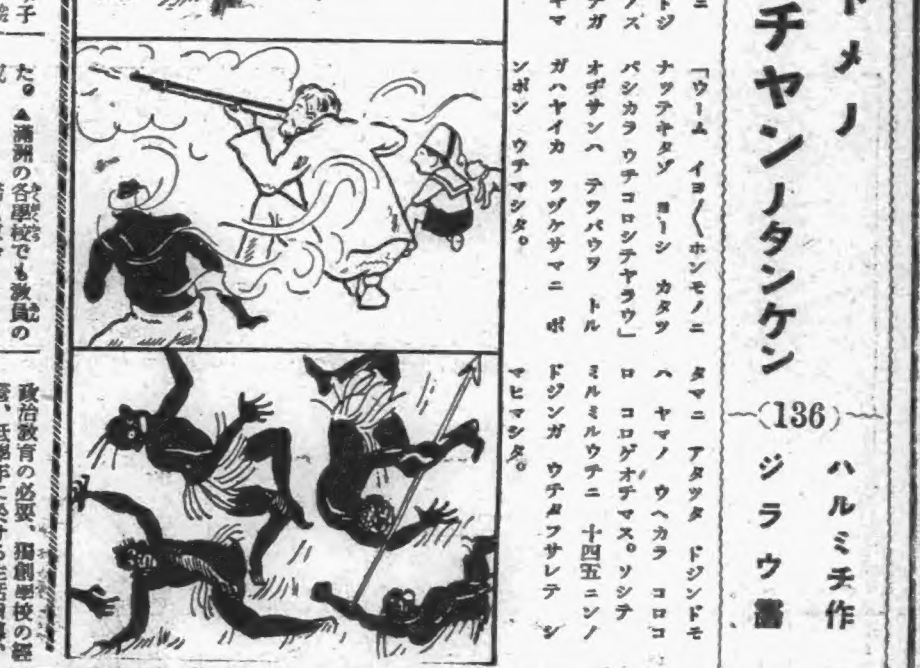 メノ
チヤンノタンケン
(136)
ハルミチ作
ジラウ畫
「ウーム イヨ〱ホンモノニ
ナツテキタゾ ヨーシ カタツ
パシカラ ウチコロシテヤラウ」
オヂサンハ テツパウヲ トル
ガハヤイカ ツヅケサマニ ポ
ンポン ウチマシタ。
タマニ アタツタ ドジンドモ
ハ ヤマノ ウヘカラ コロコ
ロ コロゲオチマス。ソシテ
ミルミルウチニ 十四五ニンノ
ドジンガ ウチタフサレテ シ
マヒマシタ。
た。▲滿洲の各學校でも敎員の
政治敎育の必要、獨創學校の經